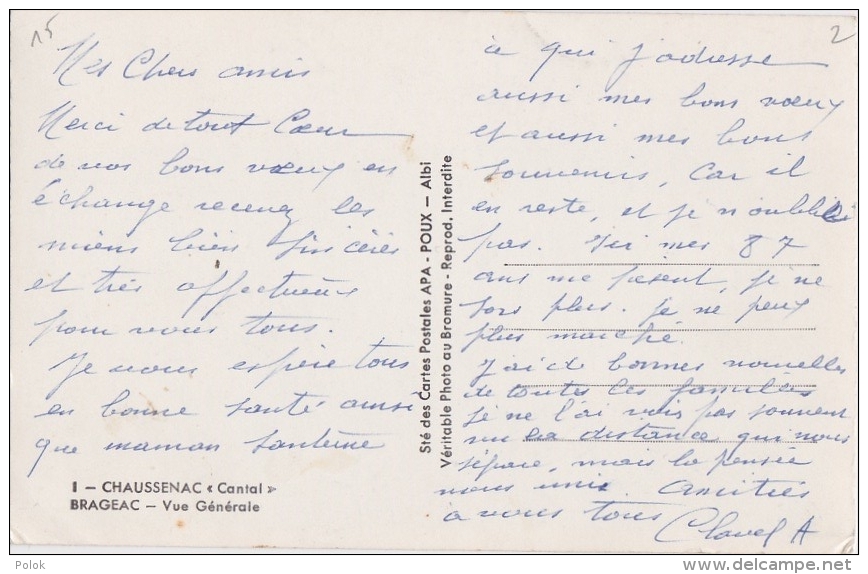 15
Mes Chers amis
Merci de tout Cœur
de vos bons vœux en
échange recevez les
miens bien sincères
et très affectueux
pour vous tous.
Je vous espère tous
en bonne santé ainsi
que maman
1 — CHAUSSENAC « Cantal »
BRAGEAC — Vue Générale
Sté des Cartes Postales APA - POUX — Albi
Véritable Photo au Bromure - Reprod. Interdite
2
à qui j'adresse
aussi mes bons vœux
et aussi mes bons
souvenirs, Car il
en reste, et je n'oublie
pas. Ici mes 87
ans me pèsent, je ne
sors plus. je ne peux
plus marché.
J'ai de bonnes nouvelles
de toutes les familles
je ne l'ai vois pas souvent
vu la distance qui nous
sépare, mais la pensée
nous unis. Amitiés
à vous tous Clavel A
Polok
delcampe.net